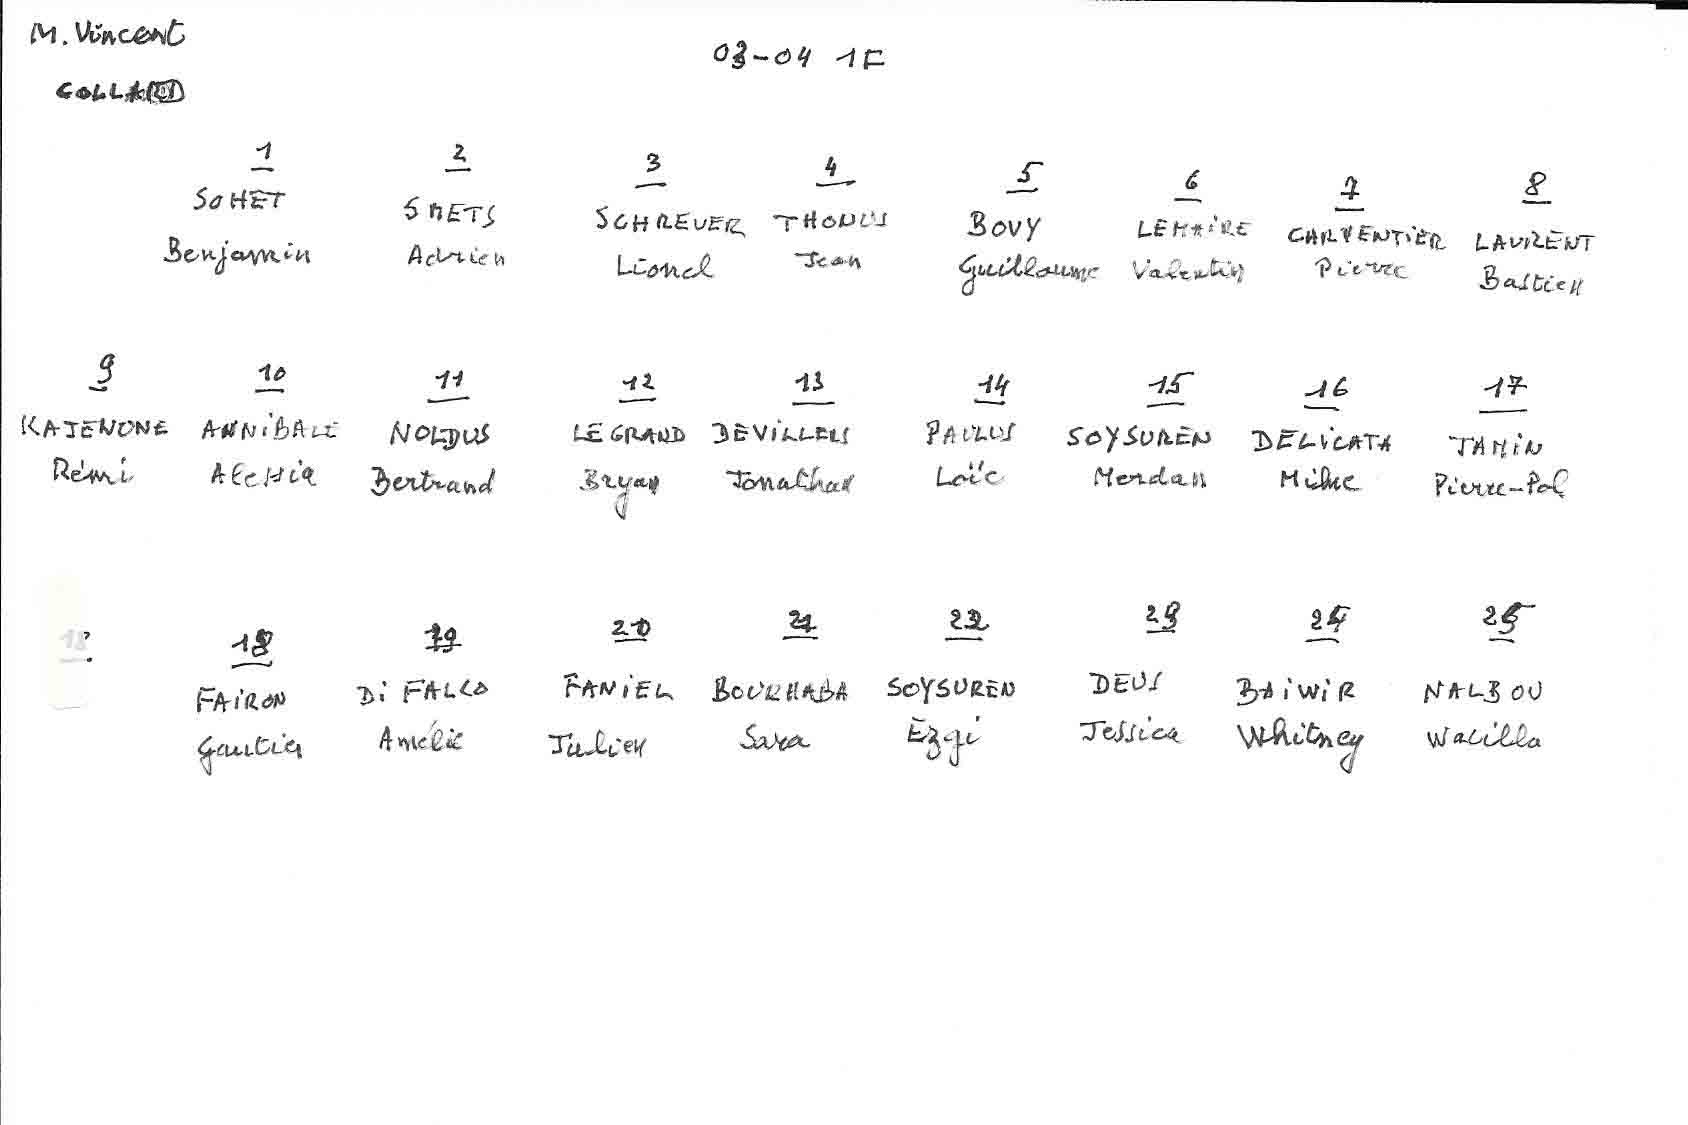 M. Vincent
COLLARD
03-04 1F
1 2 3 4 5 6 7 8
SOHET SMETS SCHREUER THONUS BOVY LEMAIRE CARPENTIER LAURENT
Benjamin Adrien Lionel Jean Guillaume Valentin Pierre Bastien
9 10 11 12 13 14 15 16 17
KAJENONE ANNiBALE NOLDUS LEGRAND DEViLLERS PAULUS SOYSUREN DELiCATA TAMiN
Rémi Alessia Bertrand Bryan Jonathan Loïc Merdan Pierre-Pol
18
18 19 20 21 22 23 24 25
FAiRON Di FALCO FANiEL BOURHABA SOYSUREN DEUS BAiWiR NALBOU
Gautier Amélie Julien Sara Ezgi Jessica Whitney Wacilla